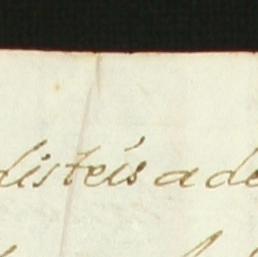 disteis a de